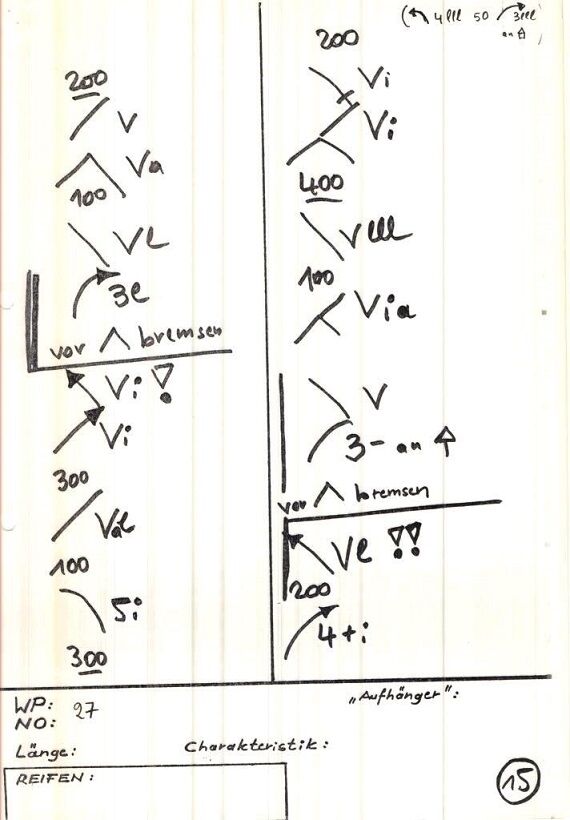 (4lll 50 3lll
an )
200
V
Va
100
Vl
3l
vor bremsen
Vi !
Vi
300
Val
100
5i
300
200
Vi
Vi
400
Vlll
100
Via
V
3- an
vor bremsen
Vl !!
200
4+i
WP: 27
NO:
„Aufhänger":
Länge:
Charakteristik:
REIFEN:
15